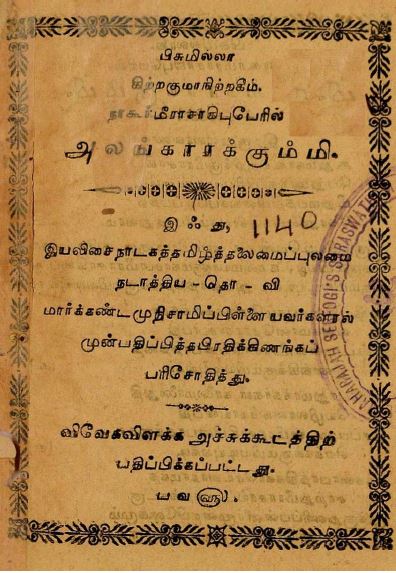 பிசுமில்லா
கிற்றகுமாநிற்றகீம்.
நாகூர்மீராசாகிபுபேரில்
அலங்காரக்கும்மி.
இஃது,
1140
இயலிசைநாடகத்தமிழ்த்தலைமைப்புலமை
நடாத்திய - தொ - வி
மார்க்கண்டமுநிசாமிப்பிள்ளையவர்களால்
முன்பதிப்பித்தபிரதிக்கிணங்கப்
பரிசோதித்து.
விவேகவிளக்க அச்சுக்கூடத்திற்
பதிப்பிக்கப்பட்டது.
யுவ ௵.
MAHARAJAH SERFOJI'S SARASWAT